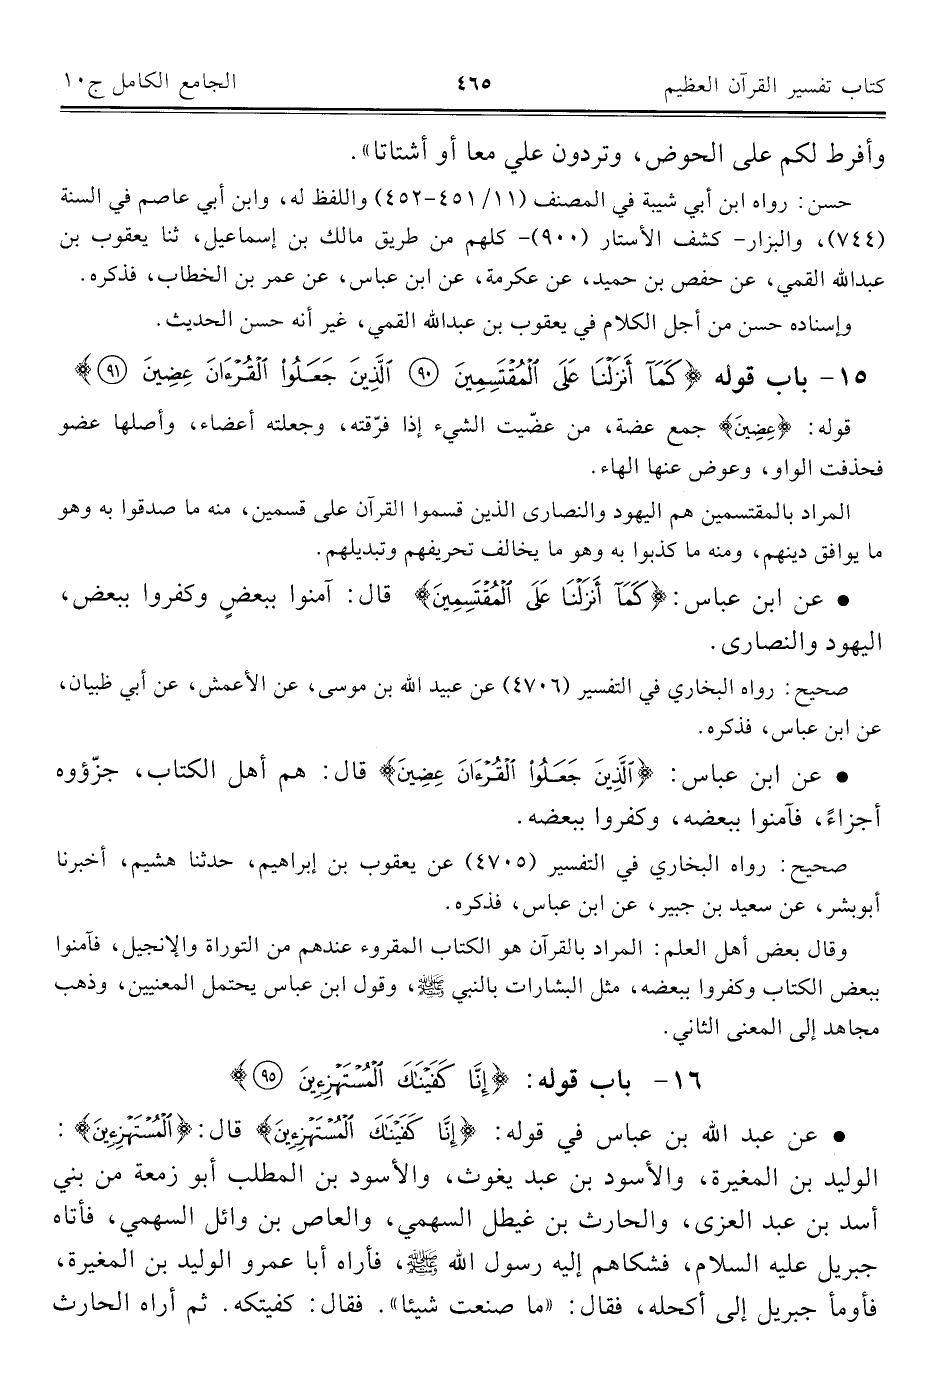 كتاب تفسير القرآن العظيم ٤٦٥ الجامع الكامل ج١٠
وأفرط لكم على الحوض، وتردون علي معا أو أشتاتا».
حسن: رواه ابن أبي شيبة في المصنف (١١/ ٤٥١-٤٥٢) واللفظ له، وابن أبي عاصم في السنة
(٧٤٤)، والبزار- كشف الأستار (٩٠٠)- كلهم من طريق مالك بن إسماعيل، ثنا يعقوب بن
عبدالله القمي، عن حفص بن حميد، عن عكرمة، عن ابن عباس، عن عمر بن الخطاب، فذكره.
وإسناده حسن من أجل الكلام في يعقوب بن عبدالله القمي، غير أنه حسن الحديث.
١٥- باب قوله ﴿كَمَآ أَنزَلْنَا عَلَى ٱلْمُقْتَسِمِينَ ۝٩٠ ٱلَّذِينَ جَعَلُوا۟ ٱلْقُرْءَانَ عِضِينَ ۝٩١﴾
قوله: ﴿عِضِينَ﴾ جمع عضة، من عضّيت الشيء إذا فرّقته، وجعلته أعضاء، وأصلها عضو
فحذفت الواو، وعوض عنها الهاء.
المراد بالمقتسمين هم اليهود والنصارى الذين قسموا القرآن على قسمين، منه ما صدقوا به وهو
ما يوافق دينهم، ومنه ما كذبوا به وهو ما يخالف تحريفهم وتبديلهم.
• عن ابن عباس: ﴿كَمَآ أَنزَلْنَا عَلَى ٱلْمُقْتَسِمِينَ﴾ قال: آمنوا ببعضٍ وكفروا ببعض،
اليهود والنصارى.
صحيح: رواه البخاري في التفسير (٤٧٠٦) عن عبيد الله بن موسى، عن الأعمش، عن أبي ظبيان،
عن ابن عباس، فذكره.
• عن ابن عباس: ﴿ٱلَّذِينَ جَعَلُوا۟ ٱلْقُرْءَانَ عِضِينَ﴾ قال: هم أهل الكتاب، جزّؤوه
أجزاءً، فآمنوا ببعضه، وكفروا ببعضه.
صحيح: رواه البخاري في التفسير (٤٧٠٥) عن يعقوب بن إبراهيم، حدثنا هشيم، أخبرنا
أبوبشر، عن سعيد بن جبير، عن ابن عباس، فذكره.
وقال بعض أهل العلم: المراد بالقرآن هو الكتاب المقروء عندهم من التوراة والإنجيل، فآمنوا
ببعض الكتاب وكفروا ببعضه، مثل البشارات بالنبي ﷺ، وقول ابن عباس يحتمل المعنيين، وذهب
مجاهد إلى المعنى الثاني.
١٦- باب قوله: ﴿إِنَّا كَفَيْنَٰكَ ٱلْمُسْتَهْزِءِينَ ۝٩٥﴾
• عن عبد الله بن عباس في قوله: ﴿إِنَّا كَفَيْنَٰكَ ٱلْمُسْتَهْزِءِينَ﴾ قال: ﴿ٱلْمُسْتَهْزِءِينَ﴾:
الوليد بن المغيرة، والأسود بن عبد يغوث، والأسود بن المطلب أبو زمعة من بني
أسد بن عبد العزى، والحارث بن غيطل السهمي، والعاص بن وائل السهمي، فأتاه
جبريل عليه السلام، فشكاهم إليه رسول الله ﷺ، فأراه أبا عمرو الوليد بن المغيرة،
فأومأ جبريل إلى أكحله، فقال: «ما صنعت شيئا». فقال: كفيتكه. ثم أراه الحارث